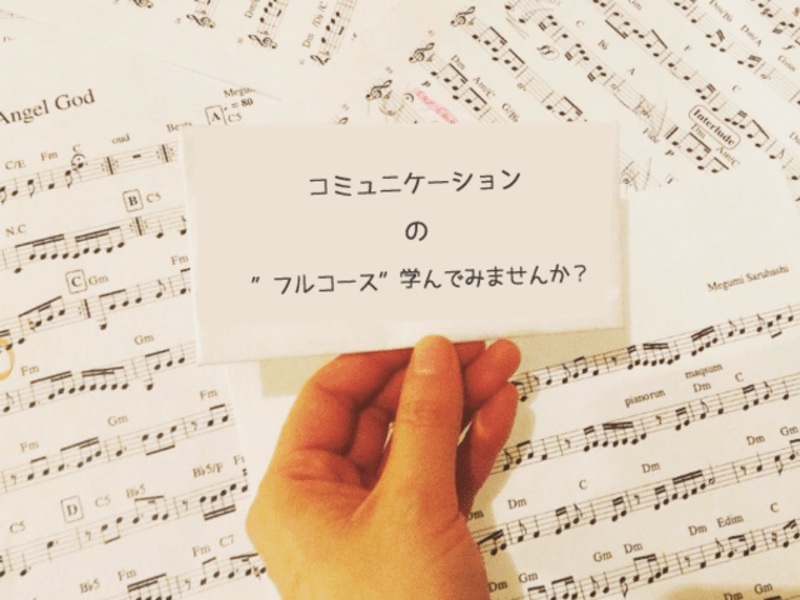 Angel God
Megu
= 80
A
C5
C/E Fm C oud Be
N.C
B
C5
C
Gm
Fm
Gm
Fm
Fm
Gm
Fm
B♭5/F
C5
D
C5
B♭5
B♭5
Fm
C7
Dm
Am/C
G/B
C
B♭
A
F
Dm
C
Interlude
Dm
Am/C
コミュニケーション
の
”フルコース”学んでみませんか？
Megumi Sarubashi
pianorun
maqsum
Dm
C
Dm
Gm
Dm
C
Dm
Dm
Edim
C
Gm
Dm
Dm
Gm